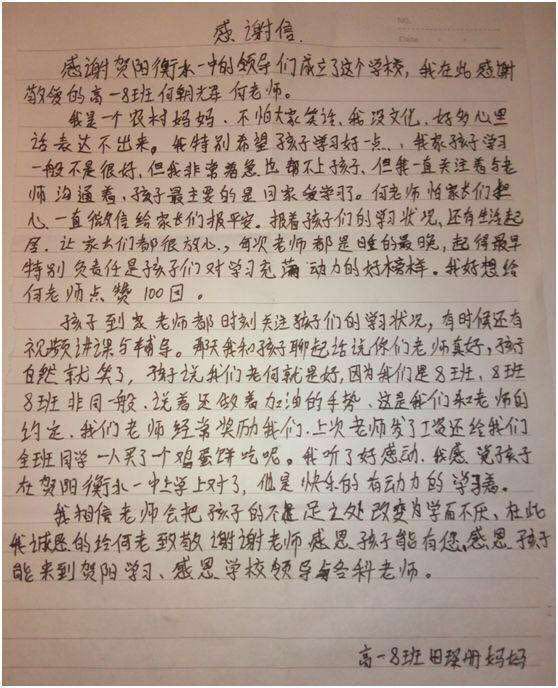 感谢信.
感谢贺阳衡水一中的领导们成立了这个学校,我在此感谢
敬爱的高一8班何朝军何老师。
我是一个农村妈妈.不怕大家笑话、我没文化,好多心里
话表达不出来。我特别希望孩子学习好一点、,我家孩子学习
一般不是很好,但我非常着急也帮不上孩子、但我一直关注着与老
师沟通着、孩子最主要的是回家爱学习了。何老师怕家长们担
心一直微信给家长们报平安。报着孩子们的学习状况、还有生活起
居.让家长们都很放心、,每次老师都是睡的最晚,起得最早
特别负责任是孩子们对学习充满动力的好榜样。我好想给
何老师点赞100回。
孩子到家老师都时刻关注孩子们的学习状况,有时候还有
视频讲课与辅导。那天我和孩子聊起话说你们老师真好,孩子
自然就笑了,孩子说我们老何就是好,因为我们是8班、8班
8班非同一般、说着还做着加油的手势、这是我们和老师的
约定、我们老师经常奖励我们.上次老师发了工资还给我们
全班同学一人买了个鸡蛋饼吃呢。我听了好感动.我感觉孩子
在贺阳衡水一中上学上对了,他是快乐的有动力的学习着。
我相信老师会把孩子的不足之处改变为学而不厌、在此
我诚恳的给何老致敬谢谢老师感恩孩子能有您、感恩孩子
能来到贺阳学习、感恩学校领导与各科老师。
高一8班田璨册妈妈